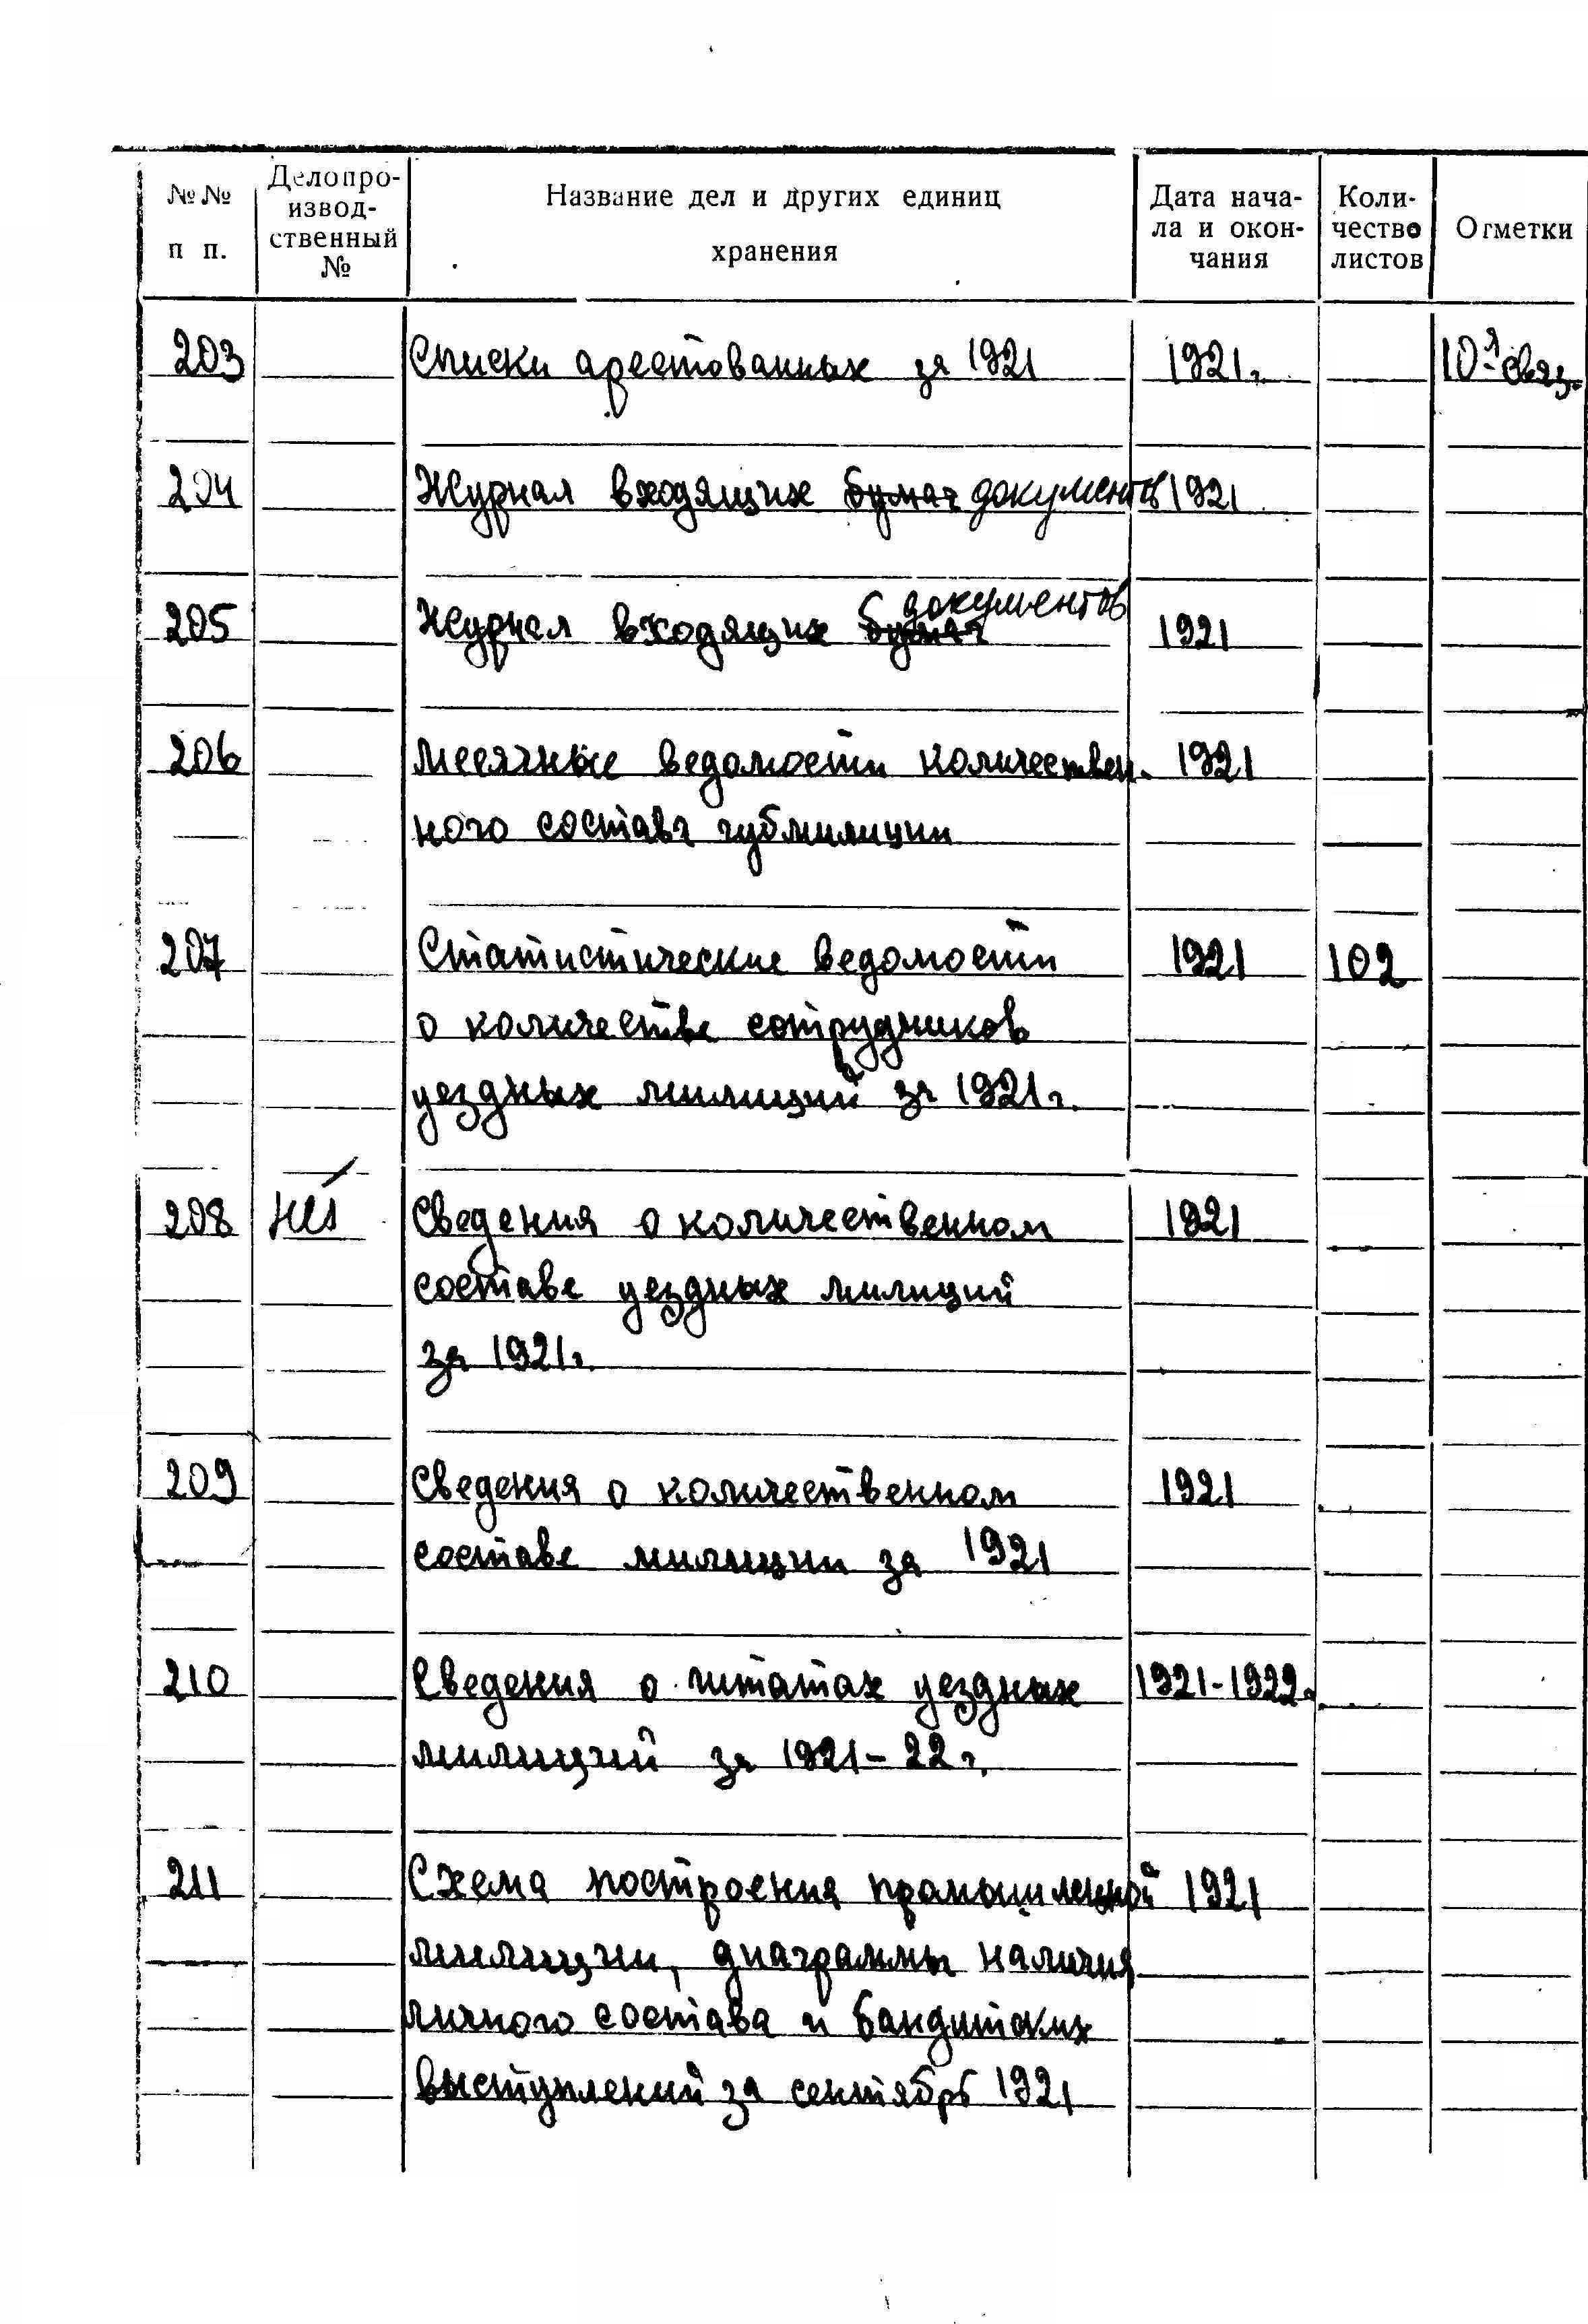 №№ п п.
Делопро-
извод-
ственный
№
Название дел и других единиц
хранения
Дата нача-
ла и окон-
чания
Коли-
чество
листов
Отметки
203 Списки арестованных за 1921 1921г. 10-я связ.
204 Журнал входящих бумаг документов 1921
205 Журнал входящих бумаг документов 1921
206 Месячные ведомости количествен- 1921
ного состава губмилиции
207 Статистические ведомости 1921 102
о количестве сотрудников
уездных милиций за 1921г.
208 Сведения о количественном 1921
составе уездных милиций
за 1921г.
209 Сведения о количественном 1921
составе милиции за 1921
210 Сведения о штатах уездных 1921-1922г.
милиций за 1921-22г.
211 Схема построения промышленной 1921
милиции, диаграммы наличия
личного состава и бандитских
выступлений за сентябрь 1921